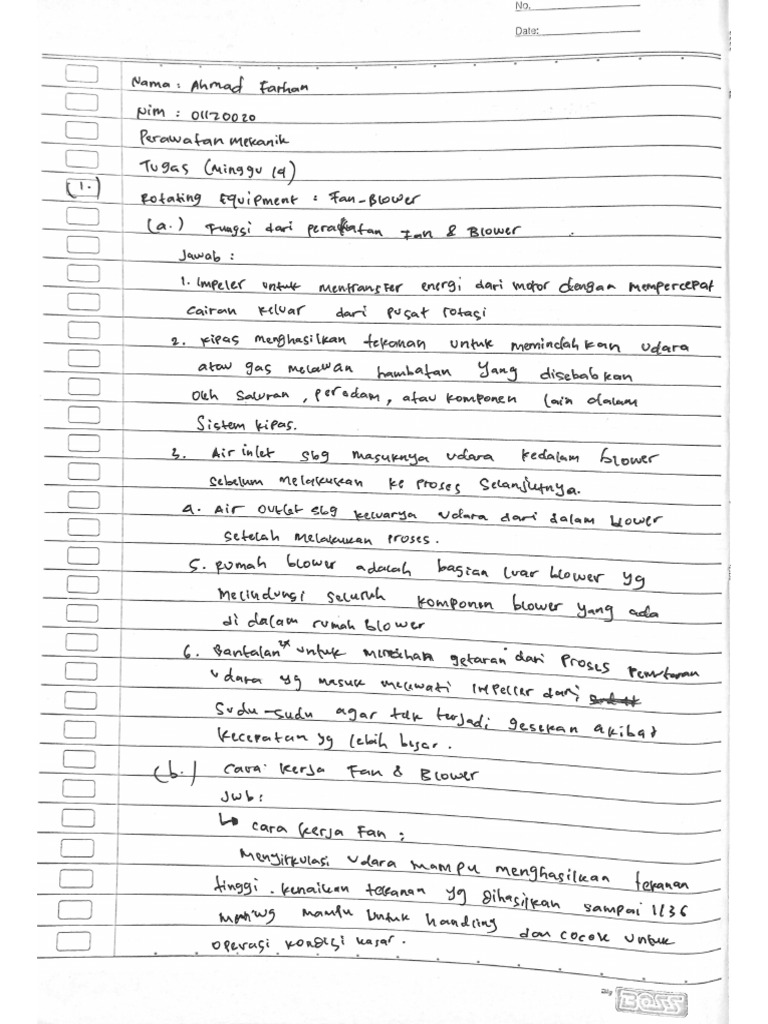 No.
Date:
Nama : Ahmad Farhan
Nim : 01120020
Perawatan mekanik
Tugas (Minggu 14)
(1.) Rotating Equipment : Fan-Blower
(a.) Fungsi dari peralatan Fan & Blower
Jawab :
1. Impeler untuk mentransfer energi dari motor dengan mempercepat
cairan keluar dari pusat rotasi
2. Kipas menghasilkan tekanan untuk memindahkan udara
atau gas melawan hambatan yang disebabkan
oleh saluran, peredam, atau komponen lain dalam
sistem kipas.
3. Air inlet sbg masuknya udara kedalam blower
sebelum melakukan ke proses selanjutnya.
4. Air outlet sbg keluarya udara dari dalam blower
setelah melakukan proses.
5. Rumah blower adalah bagian luar blower yg
melindungi seluruh komponen blower yang ada
di dalam rumah blower
6. Bantalan untuk menahan getaran dari proses pemutaran
udara yg masuk melewati impeller dari
sudu-sudu agar tdk terjadi gesekan akibat
kecepatan yg lebih besar.
(b.) Cara kerja Fan & Blower
Jwb :
↳ Cara kerja Fan :
Menyirkulasi udara mampu menghasilkan tekanan
tinggi. kenaikan tekanan yg dihasilkan sampai 1136
mmwg mampu untuk handling dan cocok untuk
operasi kondisi kasar.
BOSS